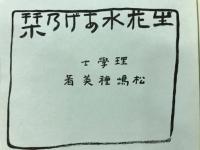 生花水あげ乃栞
理學士
松嶋種美著